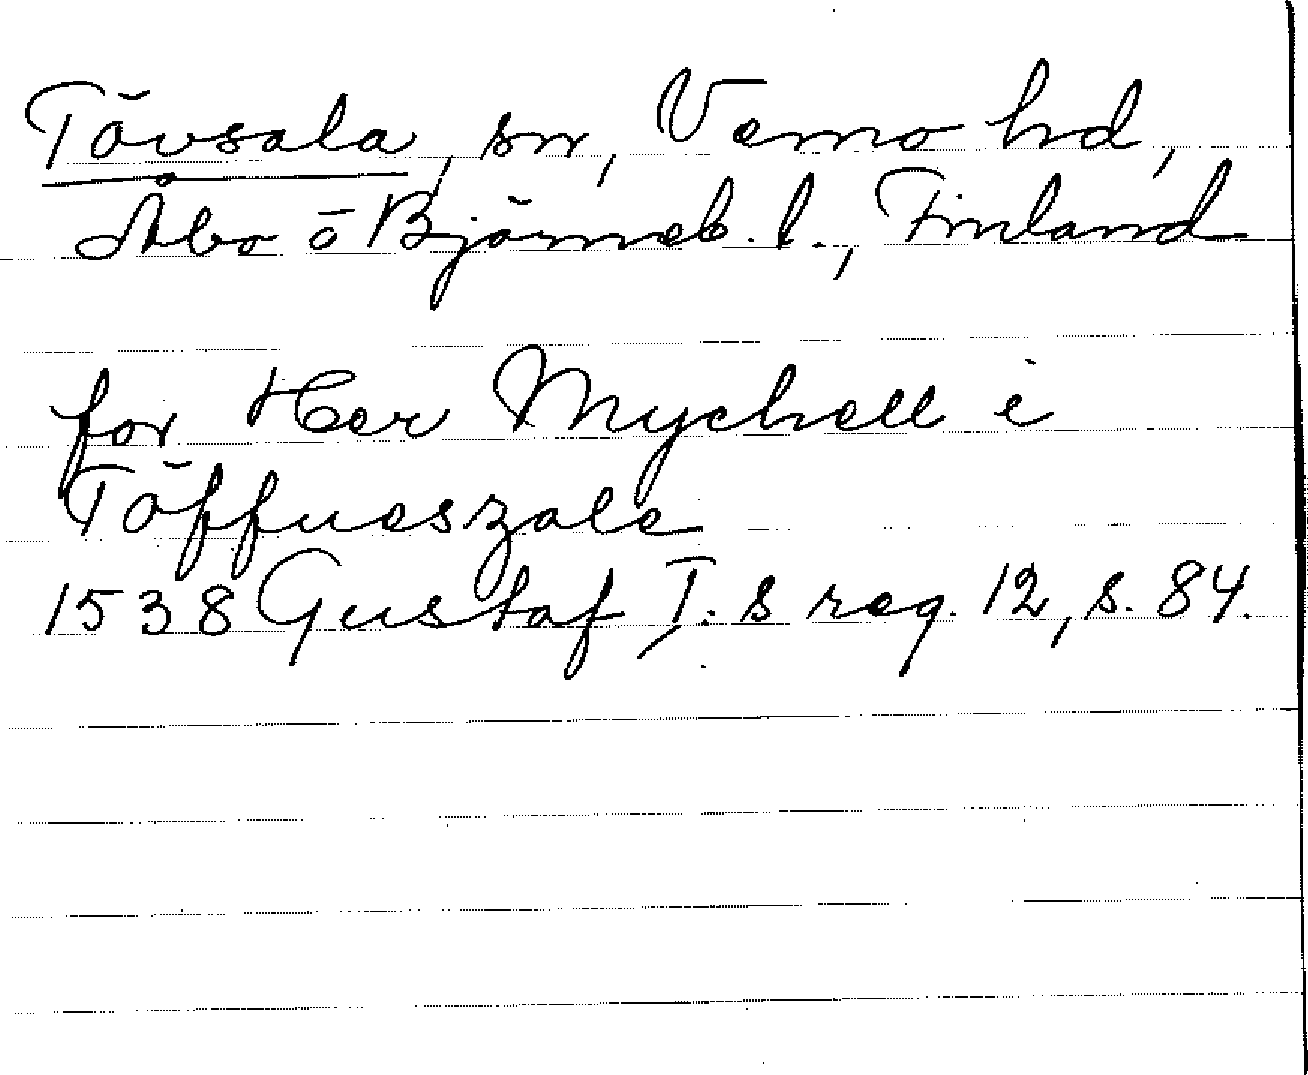 Tövsala, sn, Vemo hd,
Åbo o Björneb. l., Finland
for Her Mychell i
Töffueszala
1538 Gustaf I:s reg. 12, s. 84.